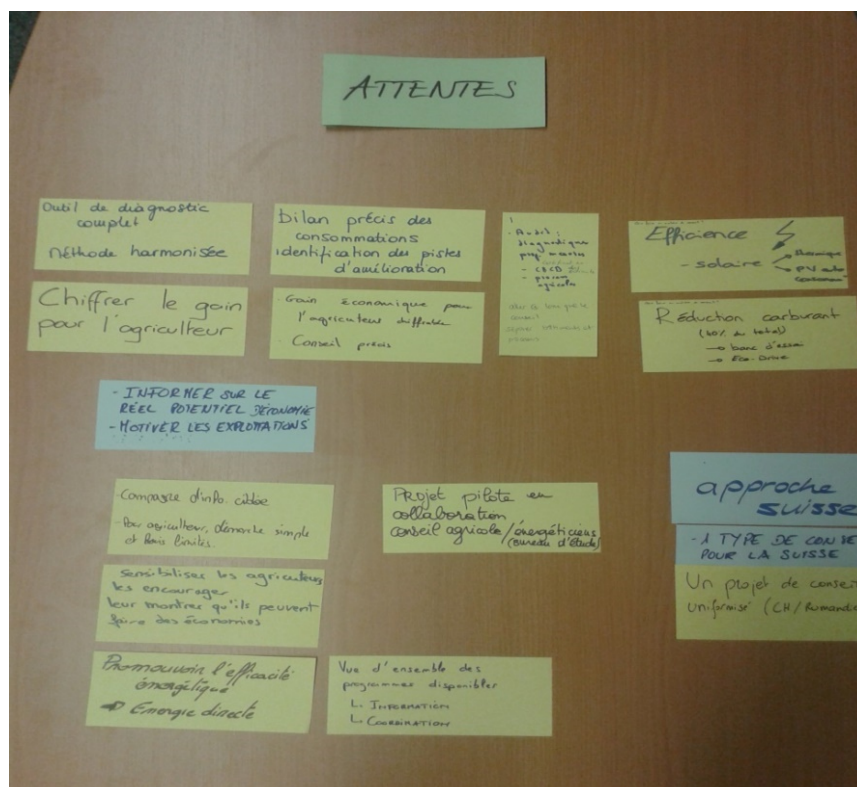 ATTENTES
Outil de diagnostic
complet
Méthode harmonisée
bilan précis des
consommations
identification des pistes
d'amélioration
- Audit :
diagnostique
Efficience
- solaire
thermique
Chiffrer le gain
pour l'agriculteur
- Gain économique pour
l'agriculteur chiffrable
- Conseil précis
Réduction carburant
→ banc d'essai
→ Eco-Drive
- INFORMER SUR LE
RÉEL POTENTIEL D'ÉCONOMIE
- MOTIVER LES EXPLOITATIONS
- Campagne d'info. ciblée
- Pour agriculteur, démarche simple
et frais limités.
Projet pilote en
collaboration
conseil agricole/énergéticiens
(bureau d'étude)
approche
suisse
- 1 TYPE DE CONSE
POUR LA SUISSE
Un projet de conseil
uniformisé (CH/Romandie
sensibiliser les agriculteurs
les encourager
leur montrer qu'ils peuvent
faire des économies
Promouvoir l'efficacité
énergétique
➔ Energie directe
Vue d'ensemble des
programmes disponibles
L. INFORMATION
L. COORDINATION